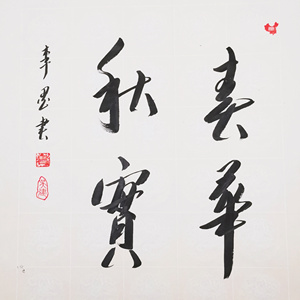 春華
秋實
李墨书